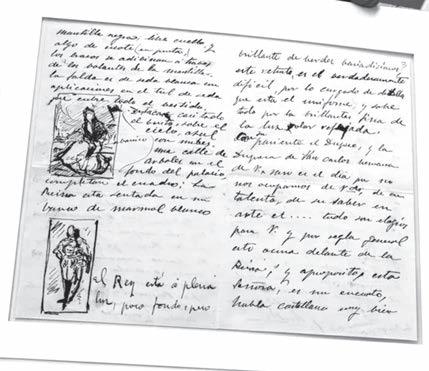 mantilla negra, libre cuello, y
algo de escote (en punta) y
los brazos se adivinan a través
de los volantes de la mantilla.
la falda es de seda blanca con
aplicaciones en el tul de cada
por entre todo el vestido.
casi todo
el busto sobre el
cielo, azul
con nubes
una calle de
árboles en el
fondo del palacio
completan el cuadro; La
Reina está sentada en un
banco de marmol blanco
el Rey está a plena
luz, poco fondo, pero
3
brillante de verdor
este retrato, es el verdaderamente
difícil, por lo cargado de detalles
que está el uniforme, y sobre
todo por la brillantez fina de
la luz solar reflejada.
pariente el Duque, y la
Duquesa de San Carlos
es el día que no
nos ocupamos de V. de su
talento, de su saber en
arte el .... todo son elogios
para V. y por regla general
esto ocurre delante de la
Reina; y apropósito, esta
Señora, es un encanto,
habla castellano muy bien